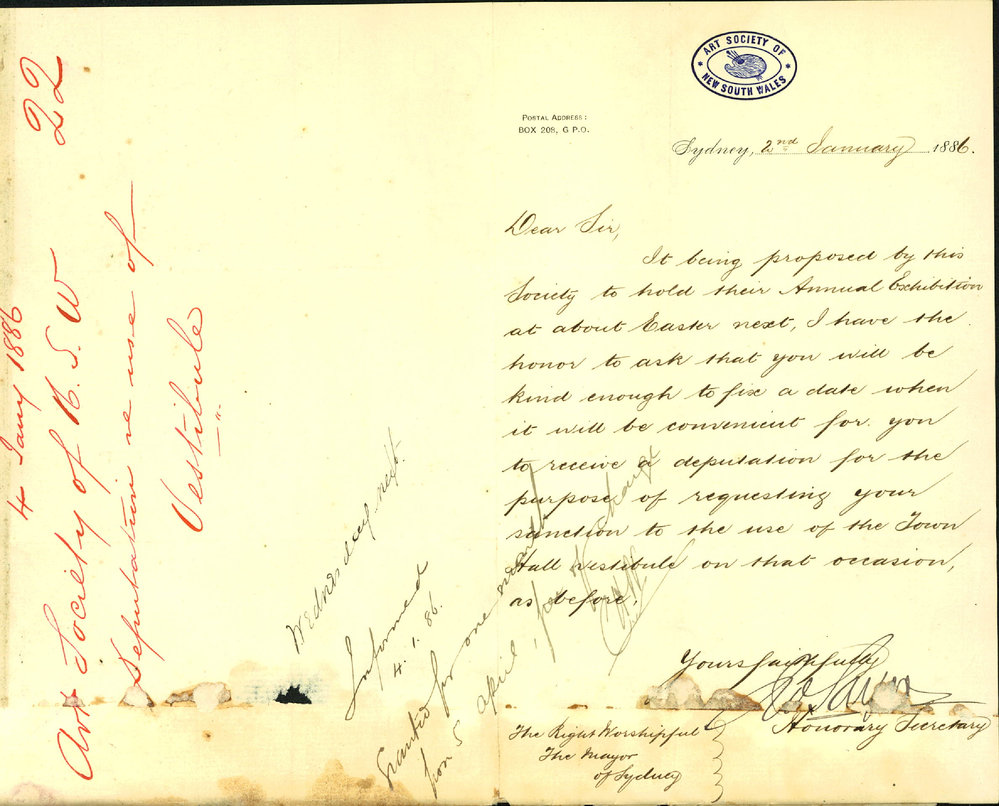 ART SOCIETY OF
NEW SOUTH WALES
POSTAL ADDRESS:
BOX 209, G P.O.
Sydney, 2nd January 1886.
Dear Sir,
It being proposed by this
Society to hold their Annual Exhibition
at about Easter next, I have the
honor to ask that you will be
kind enough to fix a date when
it will be convenient for you
to receive a deputation for the
purpose of requesting your
sanction to the use of the Town
Hall vestibule on that occasion,
as before.
Yours faithfully
Honorary Secretary
The Right Worshipful
The Mayor
of Sydney
22
4 Jany 1886
Art Society of N. S. W
Deputation re use of
Vestibule
Wednesday next.
Informed
4. 1. 86.
Granted for one month
from 5 April,